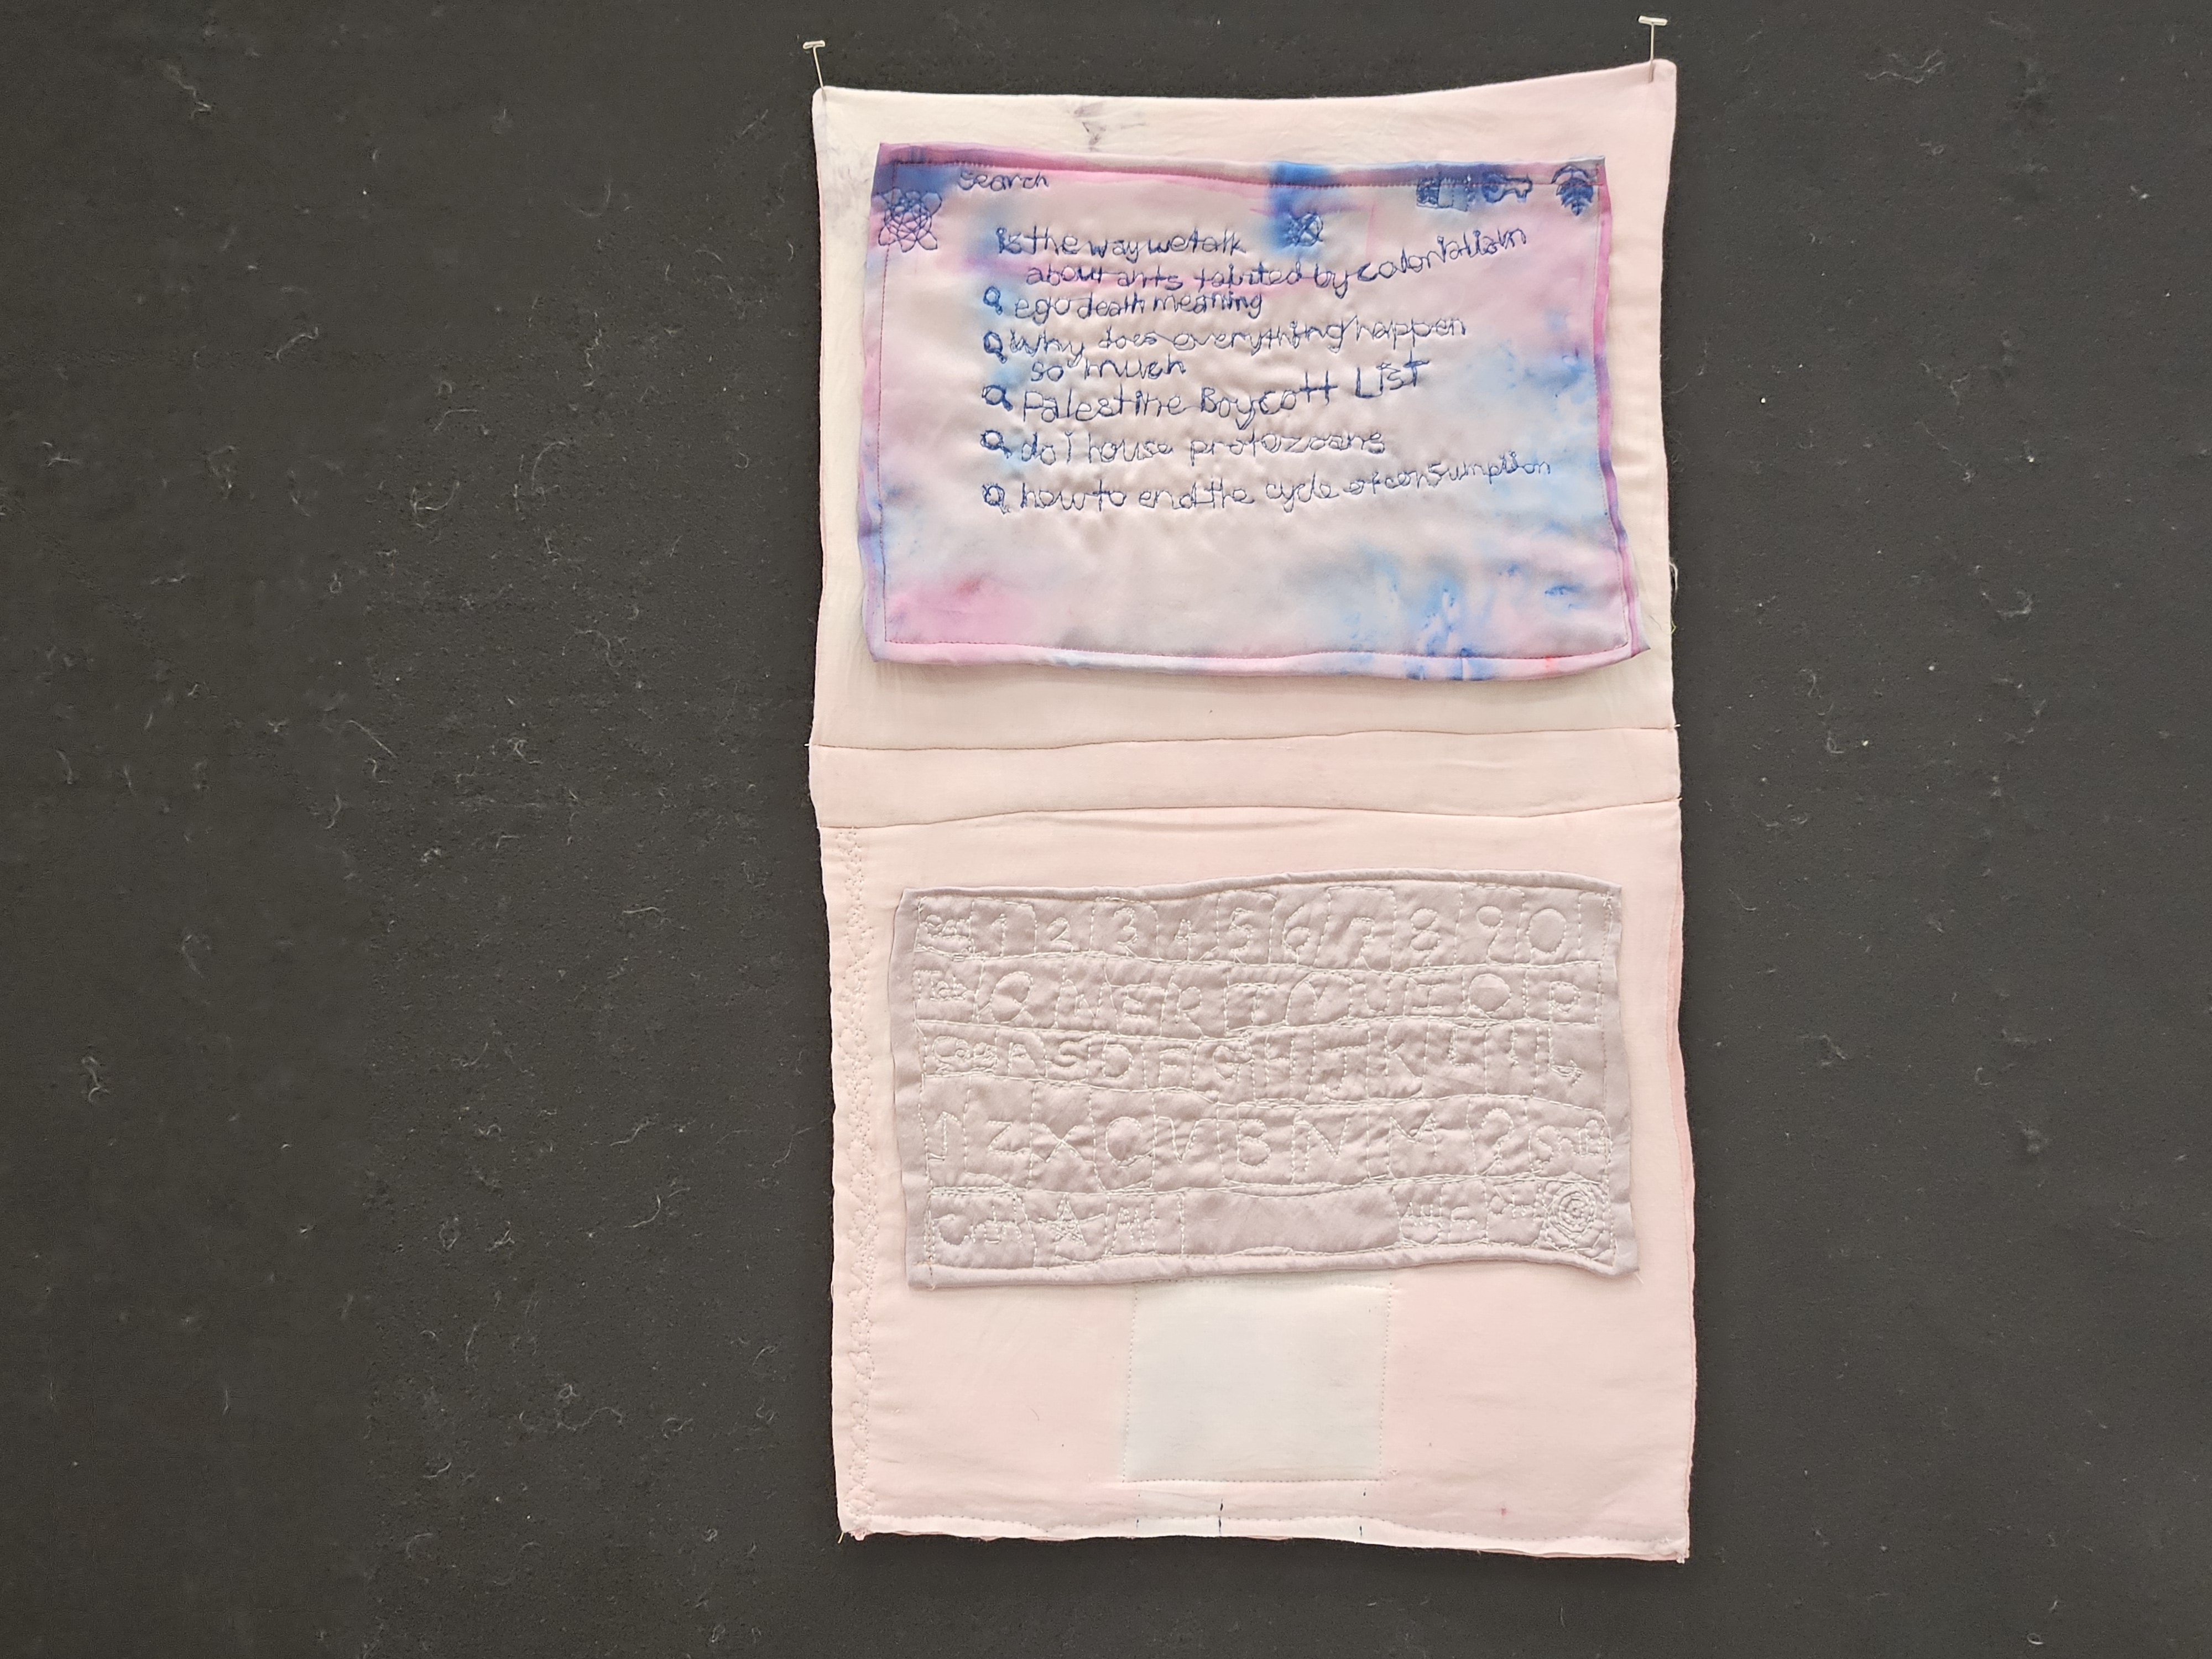 search
is the way we talk
about ants tainted by colonialism
ego death meaning
Why does everything happen
so much
Palestine Boycott LiST
do I house protozoans
how to end the cycle of consumption
1 2 3 4 5 6 7 8 9 0
Q W E R T Y U E O P
A S D F G H J K L
↑ Z X C V B N M ? Shif
Ctrl ☆ Alt